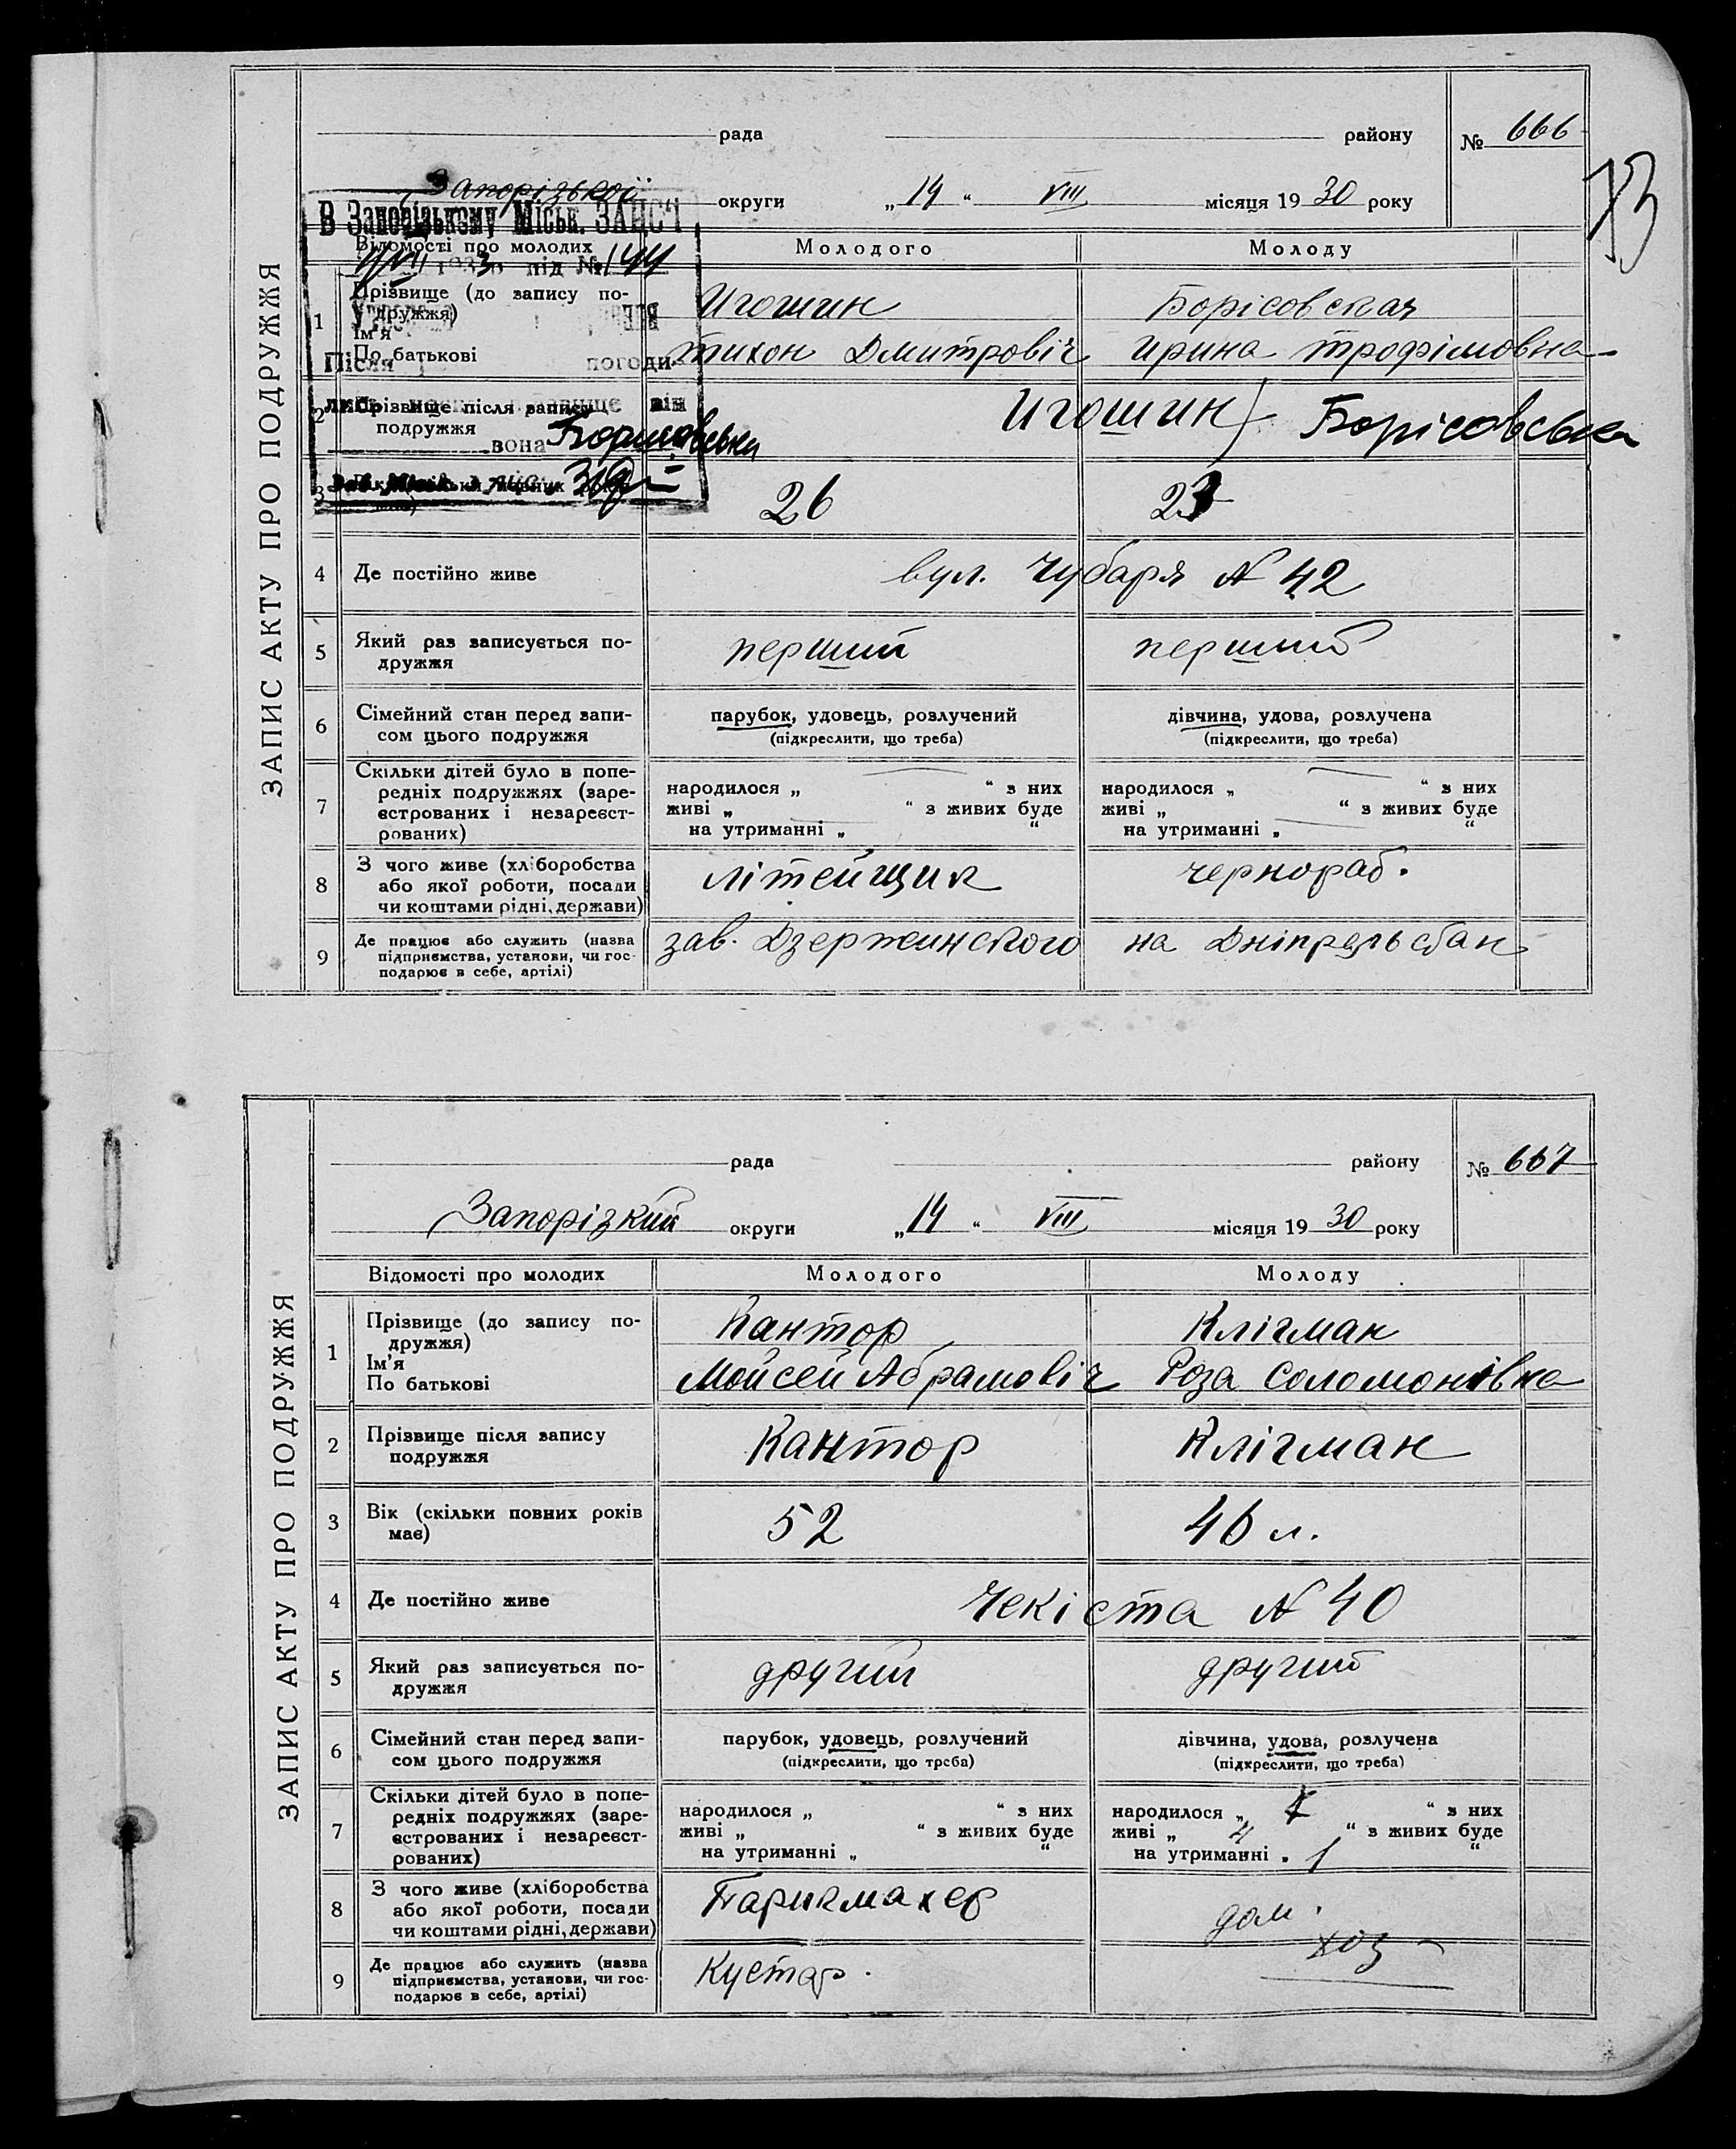 ЗАПИС АКТУ ПРО ПОДРУЖЖЯ
рада району № 666
Запорізької округи „14“ VIII місяця 1930 року
73
В Запорізькому Міськ. ЗАЦС'і
1933 під № 144
Після погоди-
він
вона Борисовська
Відомості про молодих Молодого Молоду
1 Прізвище (до запису по-
дружжя)
Ім'я
По батькові
Игошин Борісовская
Тихон Дмитровіч Ирина Трофімовна
2 Прізвище після запису
подружжя
Игошин / Борісовська
3
26 23
4 Де постійно живе вул. Чубаря № 42
5 Який раз записується по-
дружжя
перший перший
6 Сімейний стан перед запи-
сом цього подружжя
парубок, удовець, розлучений дівчина, удова, розлучена
(підкреслити, що треба) (підкреслити, що треба)
7 Скільки дітей було в попе-
редніх подружжях (заре-
єстрованих і незареєст-
рованих)
народилося „ — “ з них народилося „ — “ з них
живі „ “ з живих буде живі „ “ з живих буде
на утриманні „ “ на утриманні „ “
8 З чого живе (хліборобства
або якої роботи, посади
чи коштами рідні, держави)
літейщик чернораб.
9 Де працює або служить (назва
підприємства, установи, чи гос-
подарює в себе, артілі)
зав. Дзержинського на Дніпрельстан
ЗАПИС АКТУ ПРО ПОДРУЖЖЯ
рада району № 667
Запорізкий округи „14“ VIII місяця 1930 року
Відомості про молодих Молодого Молоду
1 Прізвище (до запису по-
дружжя)
Ім'я
По батькові
КанторКлігман
Мойсей Абрамовіч Роза Соломонівна
2 Прізвище після запису
подружжя
Кантор Клігман
3 Вік (скільки повних років
має)
52 46 л.
4 Де постійно живе Чекіста № 40
5 Який раз записується по-
дружжя
другий другий
6 Сімейний стан перед запи-
сом цього подружжя
парубок, удовець, розлучений дівчина, удова, розлучена
(підкреслити, що треба) (підкреслити, що треба)
7 Скільки дітей було в попе-
редніх подружжях (заре-
єстрованих і незареєст-
рованих)
народилося „ “ з них народилося „ “ з них
живі „ “ з живих буде живі „ 4 “ з живих буде
на утриманні „ “ на утриманні „ 1 “
8 З чого живе (хліборобства
або якої роботи, посади
чи коштами рідні, держави)
Парикмахер дом.
хоз
9 Де працює або служить (назва
підприємства, установи, чи гос-
подарює в себе, артілі)
Кустар.